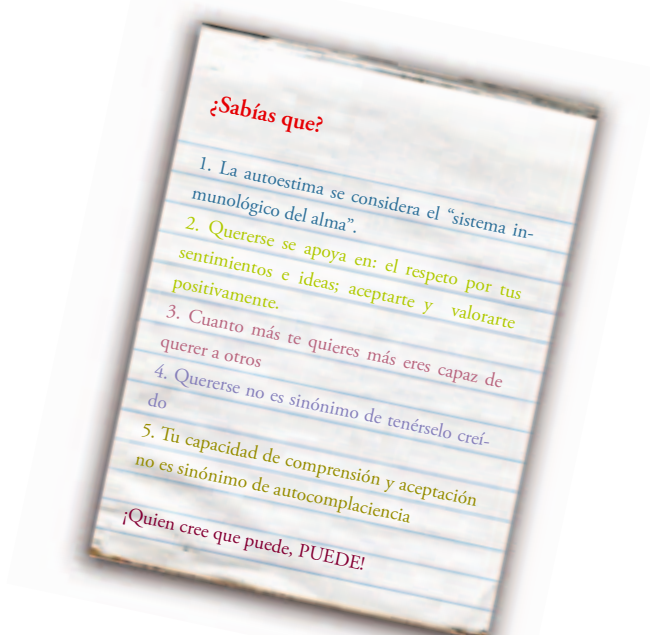 ¿Sabías que?
1. La autoestima se considera el “sistema in-
munológico del alma”.
2. Quererse se apoya en: el respeto por tus
sentimientos e ideas; aceptarte y valorarte
positivamente.
3. Cuanto más te quieres más eres capaz de
querer a otros
4. Quererse no es sinónimo de tenérselo creí-
do
5. Tu capacidad de comprensión y aceptación
no es sinónimo de autocomplaciencia
¡Quien cree que puede, PUEDE!